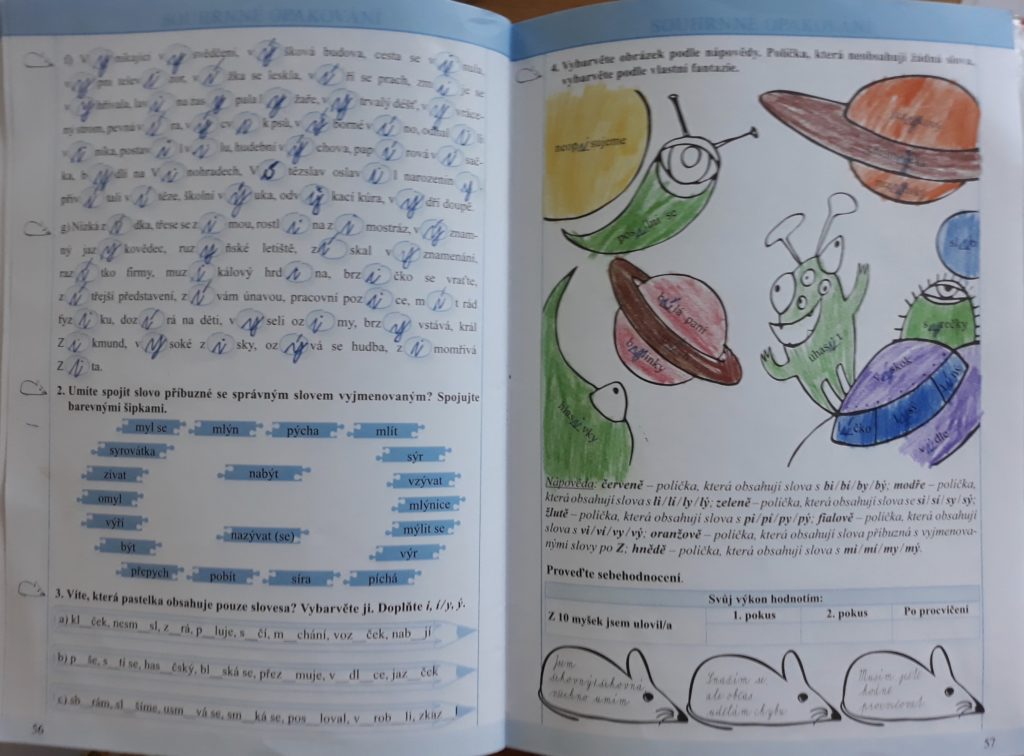 SOUHRNNÉ OPAKOVÁNÍ
f) Vynikající vysvědčení, výšková budova, cesta se vinula,
vypni televizor, vížka se leskla, víří se prach, zmije se
vyhřívala, lavina zasypala lyžaře, vytrvalý déšť, vývrác-
ka, bydlí na Vinohradech, Vítězslav oslavil narozeniny,
přivítali vítěze, školní výuka, odvykací kúra, vydří doupě.
g) Nízká zídka, třese se zimou, rostlina z mostráz, význam-
ný jazykovědec, ruzyňské letiště, získal vyznamenání,
razítko firmy, muzikálový hrdina, brzičko se vraťte,
zítřejší představení, zívám únavou, pracovní pozice, mít rád
fyziku, dozírá na děti, veselí ozimy, brzy vstává, král
Zikmund, vysoké zisky, ozývá se hudba, zimomřivá
Zita.
2. Umíte spojit slovo příbuzné se správným slovem vyjmenovaným? Spojujte
barevnými šipkami.
myl se mlýn pýcha mlít
syrovátka sýr
zívat nabýt vzývat
omyl mlýnice
výří nazývat (se) mýlit se
být výr
přepych pobít síra píchá
3. Víte, která pastelka obsahuje pouze slovesa? Vybarvěte ji. Doplňte i, í/y, ý.
a) kl__ček, nesm__sl, z__rá, p__luje, s__čí, m__chání, voz__ček, nab__jí
b) p__še, s__tí se, has__čský, bl__ská se, přež__muje, v__dl__ce, jaz__ček
c) sb__rám, sl__šíme, usm__vá se, sm__ká se, pos__loval, v__rob__li, zkaz__l
56
SOUHRNNÉ OPAKOVÁNÍ
4. Vybarvěte obrázek podle nápovědy. Políčka, která neobsahují žádná slova,
vybarvěte podle vlastní fantazie.
neopisujeme
posadil se
bílá paní
bylinky
uhasil
hlasivky
Nápověda: červeně – políčka, která obsahují slova s bi/bí/by/bý; modře – políčka,
která obsahují slova s li/lí/ly/lý; zeleně – políčka, která obsahují slova se si/sí/sy/sý;
žlutě – políčka, která obsahují slova s pi/pí/py/pý; fialově – políčka, která obsahují
slova s vi/ví/vy/vý; oranžově – políčka, která obsahují slova příbuzná s vyjmenova-
nými slovy po Z; hnědě – políčka, která obsahují slova s mi/mí/my/mý.
Proveďte sebehodnocení.
Svůj výkon hodnotím:
Z 10 myšek jsem ulovil/a 1. pokus 2. pokus Po procvičení
Jsem
šikovný/šikovná
všechno umím
Snažím se,
ale občas
udělám chybu
Musím ještě
hodně
procvičovat
57